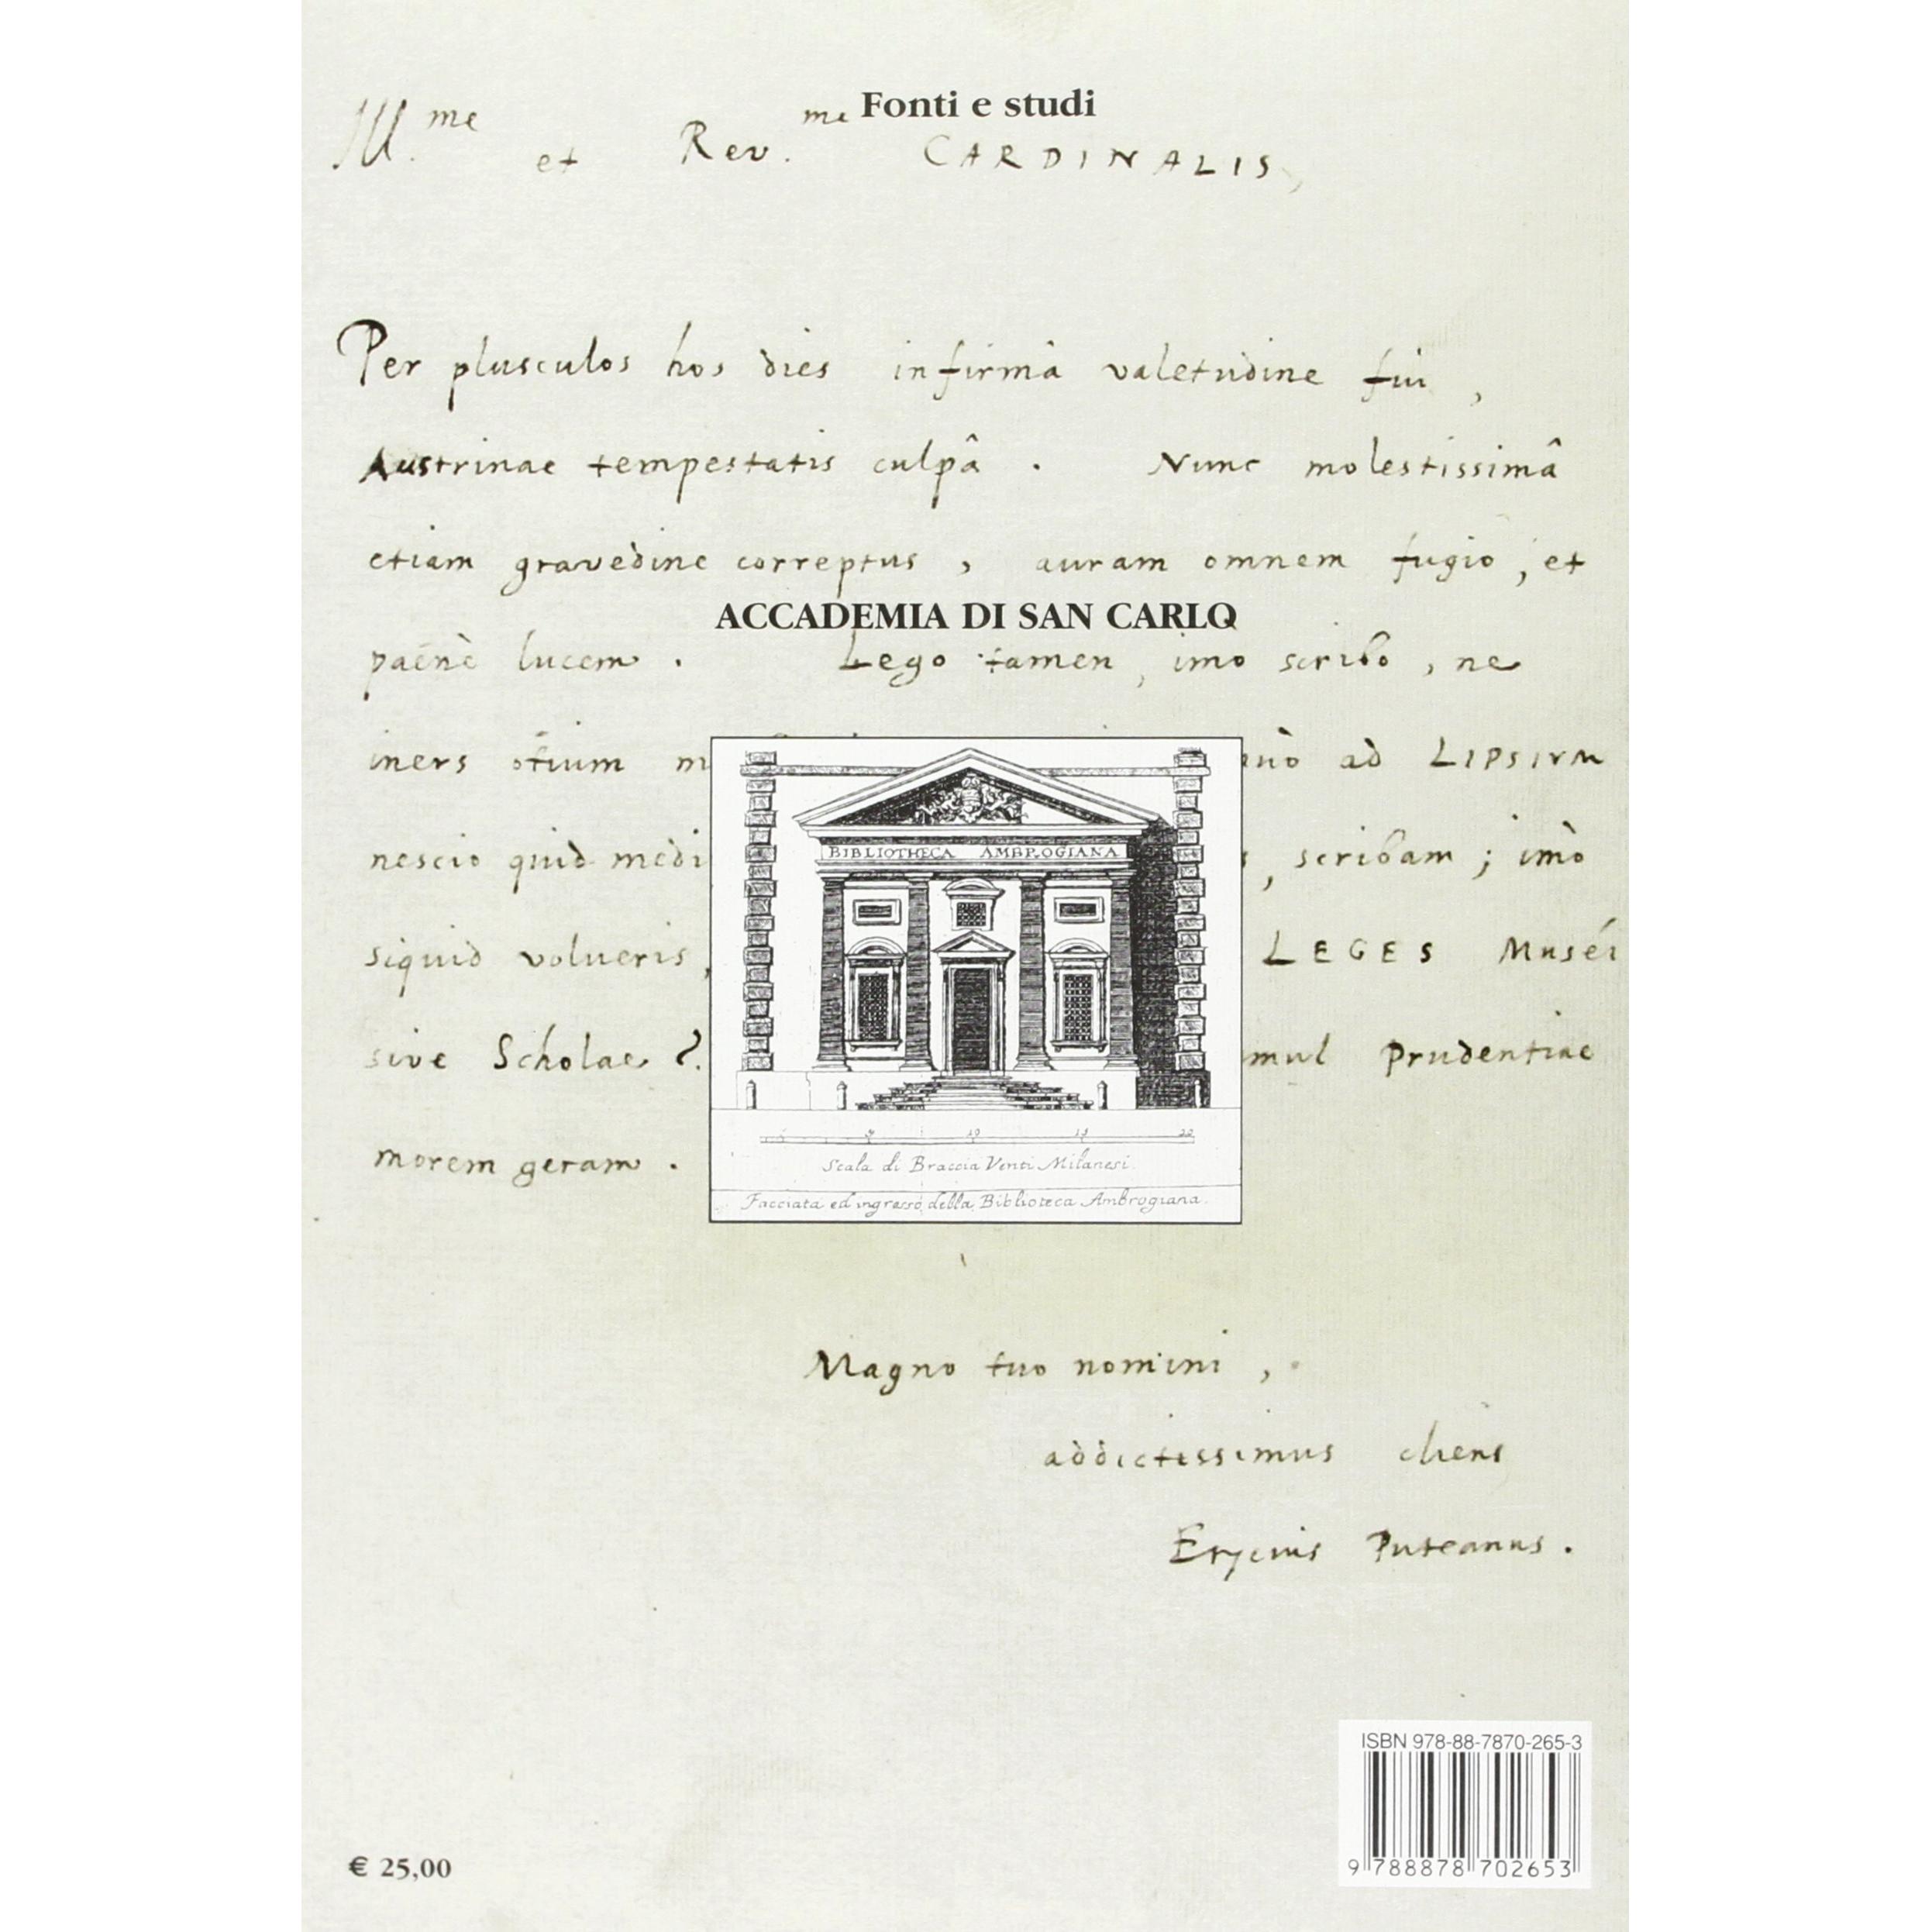 Fonti e studi
Ill.me et Rev.me CARDINALIS,
Per plusculos hos dies infirmâ valetudine fui,
Austrinae tempestatis culpâ. Nunc molestissimâ
etiam gravedine correptus, auram omnem fugio, et
ACCADEMIA DI SAN CARLO
paenè lucem. Lego tamen, imo scribo, ne
iners otium ad LIPSIVM
nescio quid scribam; imò
siquid volueris, LEGES Muséi
sive Scholae? Prudentiae
morem geram.
BIBLIOTHECA AMBROGIANA
5 10 15 20
Scala di Braccia Venti Milanesi.
Facciata ed ingresso della Biblioteca Ambrogiana.
Magno tuo nomini,
addictissimus cliens
Erycius Puteanus.
ISBN 978-88-7870-265-3
9 788878 702653
€ 25,00